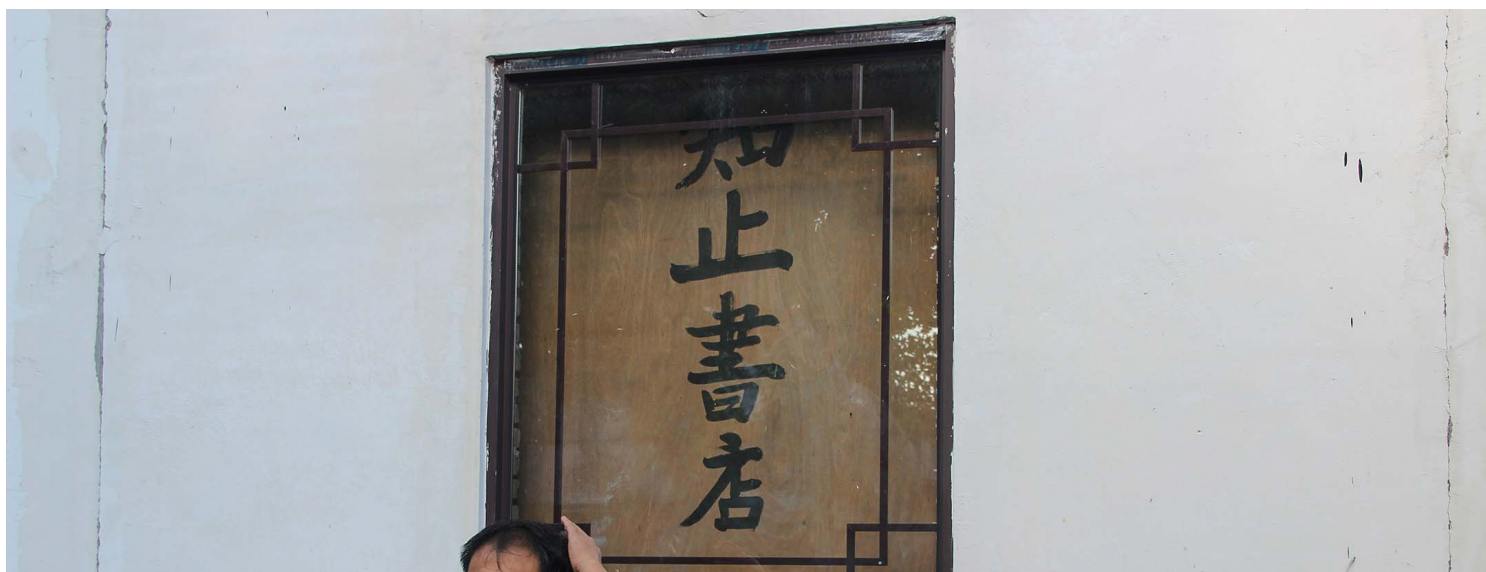 知止書店